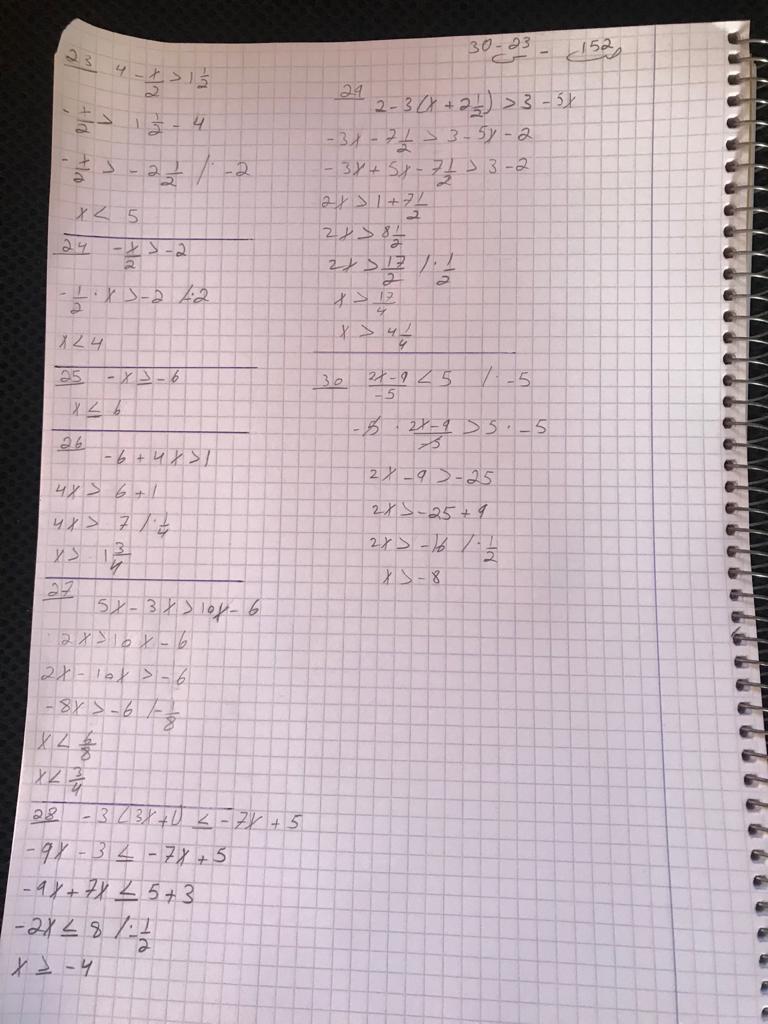 30-23 - 152
23 4 - x/2 > 1 1/2
- x/2 > 1 1/2 - 4
- x/2 > -2 1/2 /· -2
x < 5
24 - x/2 > -2
- 1/2 · x > -2 /·2
x < 4
25 -x ≥ -6
x ≤ 6
26 -6 + 4x > 1
4x > 6 + 1
4x > 7 /· 1/4
x > 1 3/4
27
5x - 3x > 10x - 6
2x > 10x - 6
2x - 10x > -6
-8x > -6 /- 1/8
x < 6/8
x < 3/4
28 -3(3x+1) ≤ -7x + 5
-9x - 3 ≤ -7x + 5
-9x + 7x ≤ 5 + 3
-2x ≤ 8 /· - 1/2
x ≥ -4
29
2 - 3(x + 2 1/2) > 3 - 5x
-3x - 7 1/2 > 3 - 5x - 2
-3x + 5x - 7 1/2 > 3 - 2
2x > 1 + 7 1/2
2x > 8 1/2
2x > 17/2 /· 1/2
x > 17/4
x > 4 1/4
30 2x-9/-5 < 5 /· -5
-5 · 2x-9/-5 > 5 · -5
2x - 9 > -25
2x > -25 + 9
2x > -16 /· 1/2
x > -8